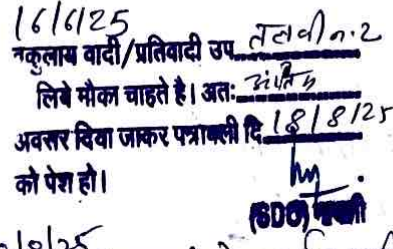 16/6/25
वकुलाय वादी/प्रतिवादी उप तलवी न. 2
लिये मौका चाहते है। अतः अंतिम
अवसर दिया जाकर पत्रावली दि 18/8/25
को पेश हो।
(SDO)